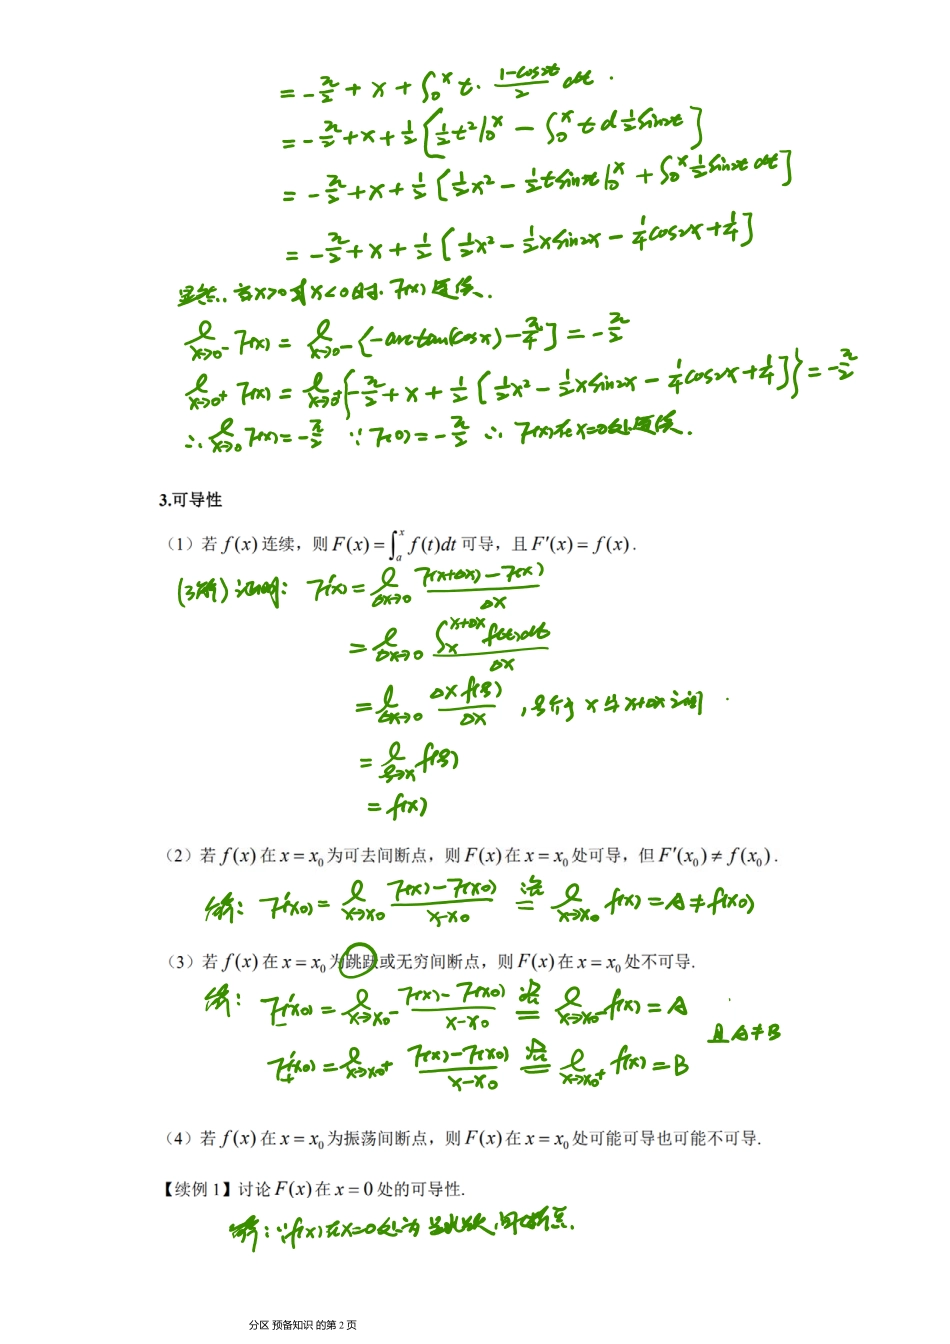 = -π/2 + x + ∫₀ˣ t·(1-cos2t)/2 dt
= -π/2 + x + 1/2 [1/2 t²|₀ˣ - ∫₀ˣ t d 1/2 sin2t]
= -π/2 + x + 1/2 [1/2 x² - 1/2 t sin2t|₀ˣ + ∫₀ˣ 1/2 sin2t dt]
= -π/2 + x + 1/2 [1/2 x² - 1/2 x sin2x - 1/4 cos2x + 1/4]
显然,当x>0或x<0时,F(x)连续.
l x→0⁻ F(x) = l x→0⁻ [-arctan(cosx) - π/4] = -π/2
l x→0⁺ F(x) = l x→0⁺ {-π/2 + x + 1/2 [1/2 x² - 1/2 x sin2x - 1/4 cos2x + 1/4]} = -π/2
∴ l x→0 F(x) = -π/2 ∵ F(0) = -π/2 ∴ F(x)在x=0处连续.
3.可导性
(1)若 f(x) 连续,则 F(x) = ∫ₐˣ f(t)dt 可导,且 F′(x) = f(x).
(了解)证明: F′(x) = l Δx→0 (F(x+Δx) - F(x))/Δx
= l Δx→0 (∫ₓ^(x+Δx) f(t)dt)/Δx
= l Δx→0 (Δx f(ξ))/Δx ,ξ介于 x与x+Δx之间
= l ξ→x f(ξ)
= f(x)
(2)若 f(x) 在 x = x₀ 为可去间断点,则 F(x) 在 x = x₀ 处可导,但 F′(x₀) ≠ f(x₀).
解: F′(x₀) = l x→x₀ (F(x) - F(x₀))/(x - x₀) 洛= l x→x₀ f(x) = A ≠ f(x₀)
(3)若 f(x) 在 x = x₀ 为跳跃或无穷间断点,则 F(x) 在 x = x₀ 处不可导.
解: F′₋(x₀) = l x→x₀⁻ (F(x) - F(x₀))/(x - x₀) 洛= l x→x₀⁻ f(x) = A
且 A≠B
F′₊(x₀) = l x→x₀⁺ (F(x) - F(x₀))/(x - x₀) 洛= l x→x₀⁺ f(x) = B
(4)若 f(x) 在 x = x₀ 为振荡间断点,则 F(x) 在 x = x₀ 处可能可导也可能不可导.
【续例 1】讨论 F(x) 在 x = 0 处的可导性.
解:∵f(x)在x=0处为跳跃间断点.
分区 预备知识 的第 2 页